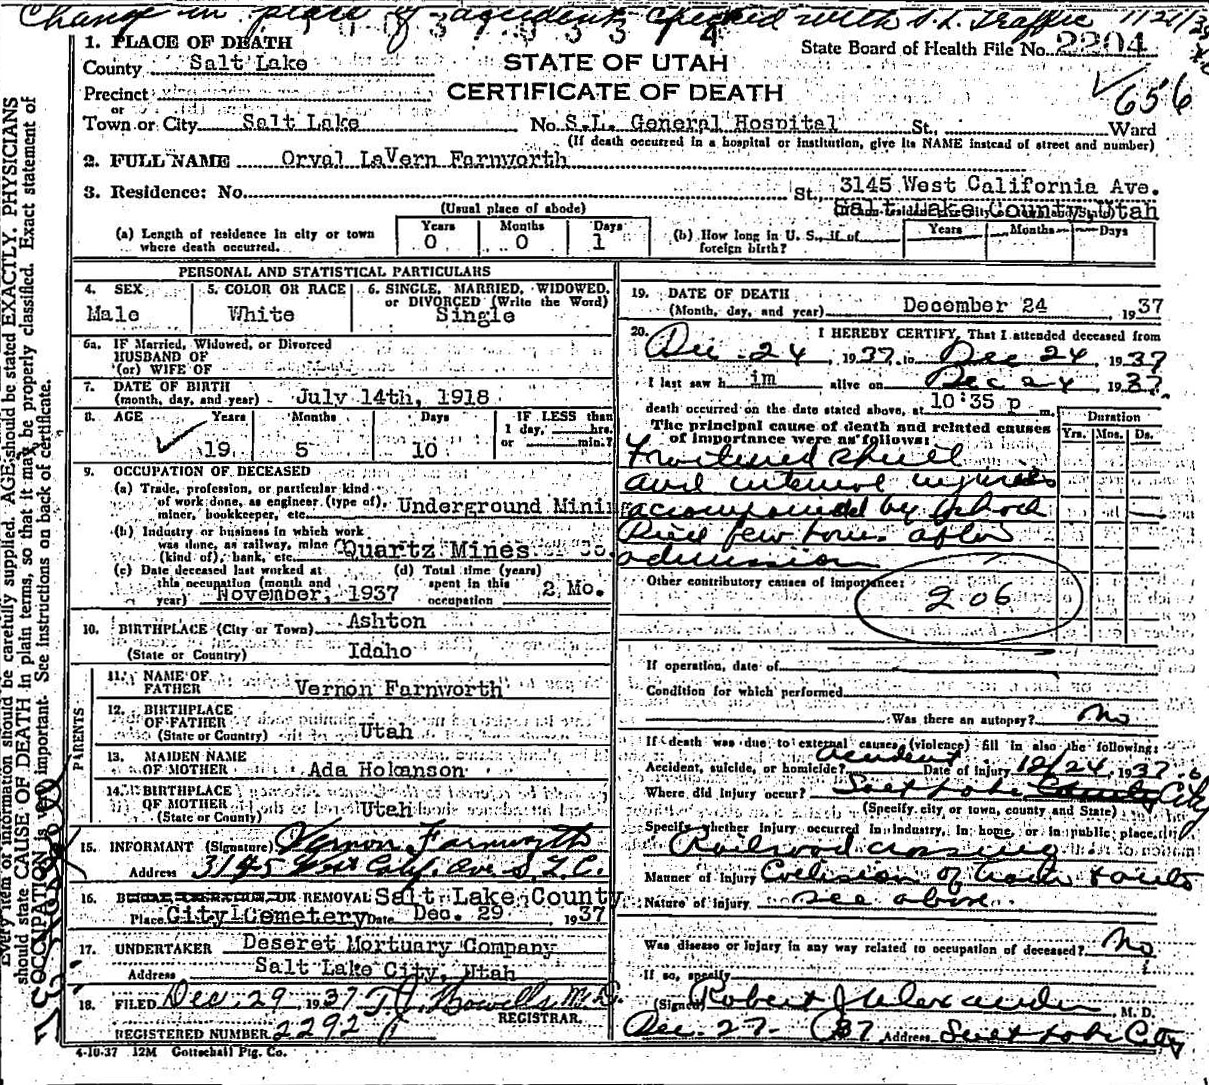 Change in place of accident checked with S. L. Traffic 11/21/38
1. PLACE OF DEATH
State Board of Health File No. 2204
County Salt Lake
STATE OF UTAH
656
Precinct
CERTIFICATE OF DEATH
or
Town or City Salt Lake No. S.L. General Hospital St., Ward
(If death occurred in a hospital or institution, give its NAME instead of street and number)
2. FULL NAME Orval LaVern Farnworth
3. Residence: No. St., 3145 West California Ave.
(Usual place of abode) Salt Lake County, Utah
(a) Length of residence in city or town where death occurred. Years 0 Months 0 Days 1
(b) How long in U. S., if of foreign birth? Years Months Days
PERSONAL AND STATISTICAL PARTICULARS
4. SEX 5. COLOR OR RACE 6. SINGLE, MARRIED, WIDOWED, or DIVORCED (Write the Word)
Male White Single
6a. IF Married, Widowed, or Divorced
HUSBAND OF
(or) WIFE OF
7. DATE OF BIRTH
(month, day, and year) July 14th, 1918
8. AGE Years Months Days IF LESS than
1 day, hrs.
or min.?
19 5 10
9. OCCUPATION OF DECEASED
(a) Trade, profession, or particular kind
of work done, as engineer (type of),
miner, bookkeeper, etc. Underground Mini
(b) Industry or business in which work
was done, as railway, mine
(kind of), bank, etc. Quartz Mines Co.
(c) Date deceased last worked at
this occupation (month and
year) November, 1937
(d) Total time (years)
spent in this
occupation 2 Mo.
10. BIRTHPLACE (City or Town) Ashton
(State or Country) Idaho
PARENTS
11. NAME OF
FATHER Vernon Farnworth
12. BIRTHPLACE
OF FATHER
(State or Country) Utah
13. MAIDEN NAME
OF MOTHER Ada Hokanson
14. BIRTHPLACE
OF MOTHER
(State or County) Utah
15. INFORMANT (Signature) Vernon Farnworth
Address 3145 West Calif. Ave. S.L.C.
16. BURIAL, CREMATION, OR REMOVAL Salt Lake County
Place City Cemetery Date Dec. 29 1937
17. UNDERTAKER Deseret Mortuary Company
Address Salt Lake City, Utah
18. FILED Dec. 29 1937 T. J. Howells M.D.
REGISTRAR.
REGISTERED NUMBER 2292
4-10-37 12M Gottschall Ptg. Co.
19. DATE OF DEATH
(Month, day, and year) December 24 1937
20. I HEREBY CERTIFY, That I attended deceased from
Dec. 24, 1937, to Dec 24, 1937
I last saw him alive on Dec 24, 1937
death occurred on the date stated above, at 10:35 p m.
The principal cause of death and related causes
of importance were as follows:
Duration
Yrs. Mos. Ds.
Fractured skull
and internal injuries
accompanied by shock
Died few hours after
admission
Other contributory causes of importance:
206
If operation, date of
Condition for which performed
Was there an autopsy? No
If death was due to external causes (violence) fill in also the following:
Accident, suicide, or homicide? accident Date of injury 12/24 1937
Where did injury occur? Salt Lake County City
(Specify city or town, county and State)
Specify whether injury occurred in industry, in home, or in public place.
Railroad crossing
Manner of injury Collision of train & auto
Nature of injury see above
Was disease or injury in any way related to occupation of deceased? No
If so, specify
(Signed) Robert J Alexander M. D.
Dec. 27. 1937 Address Salt Lake City
Every item of information should be carefully supplied. AGE should be stated EXACTLY. PHYSICIANS
should state CAUSE OF DEATH in plain terms, so that it may be properly classified. Exact statement of
OCCUPATION is very important. See instructions on back of certificate.